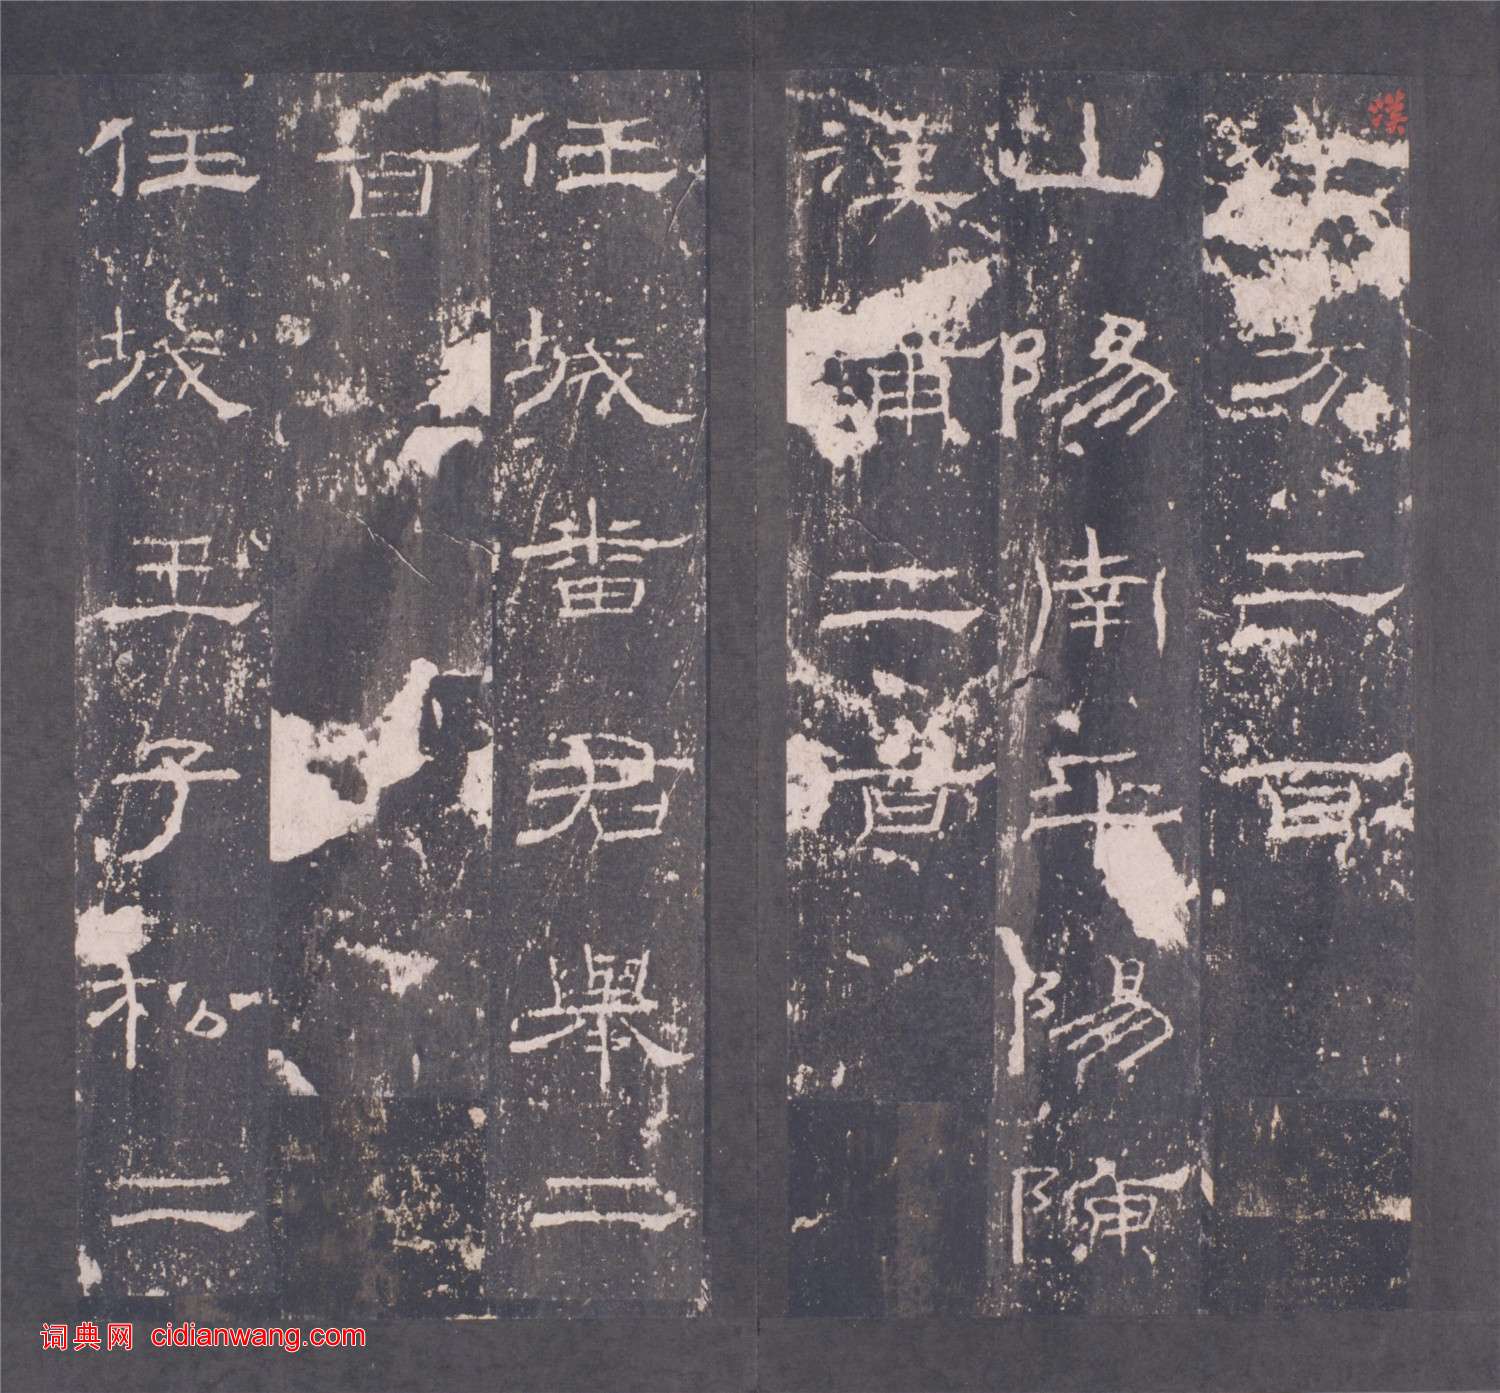 方二百
山陽南平陽陳
漢甫二百
任城番君舉二
百
任城王子松二
漢
词典网 cidianwang.com